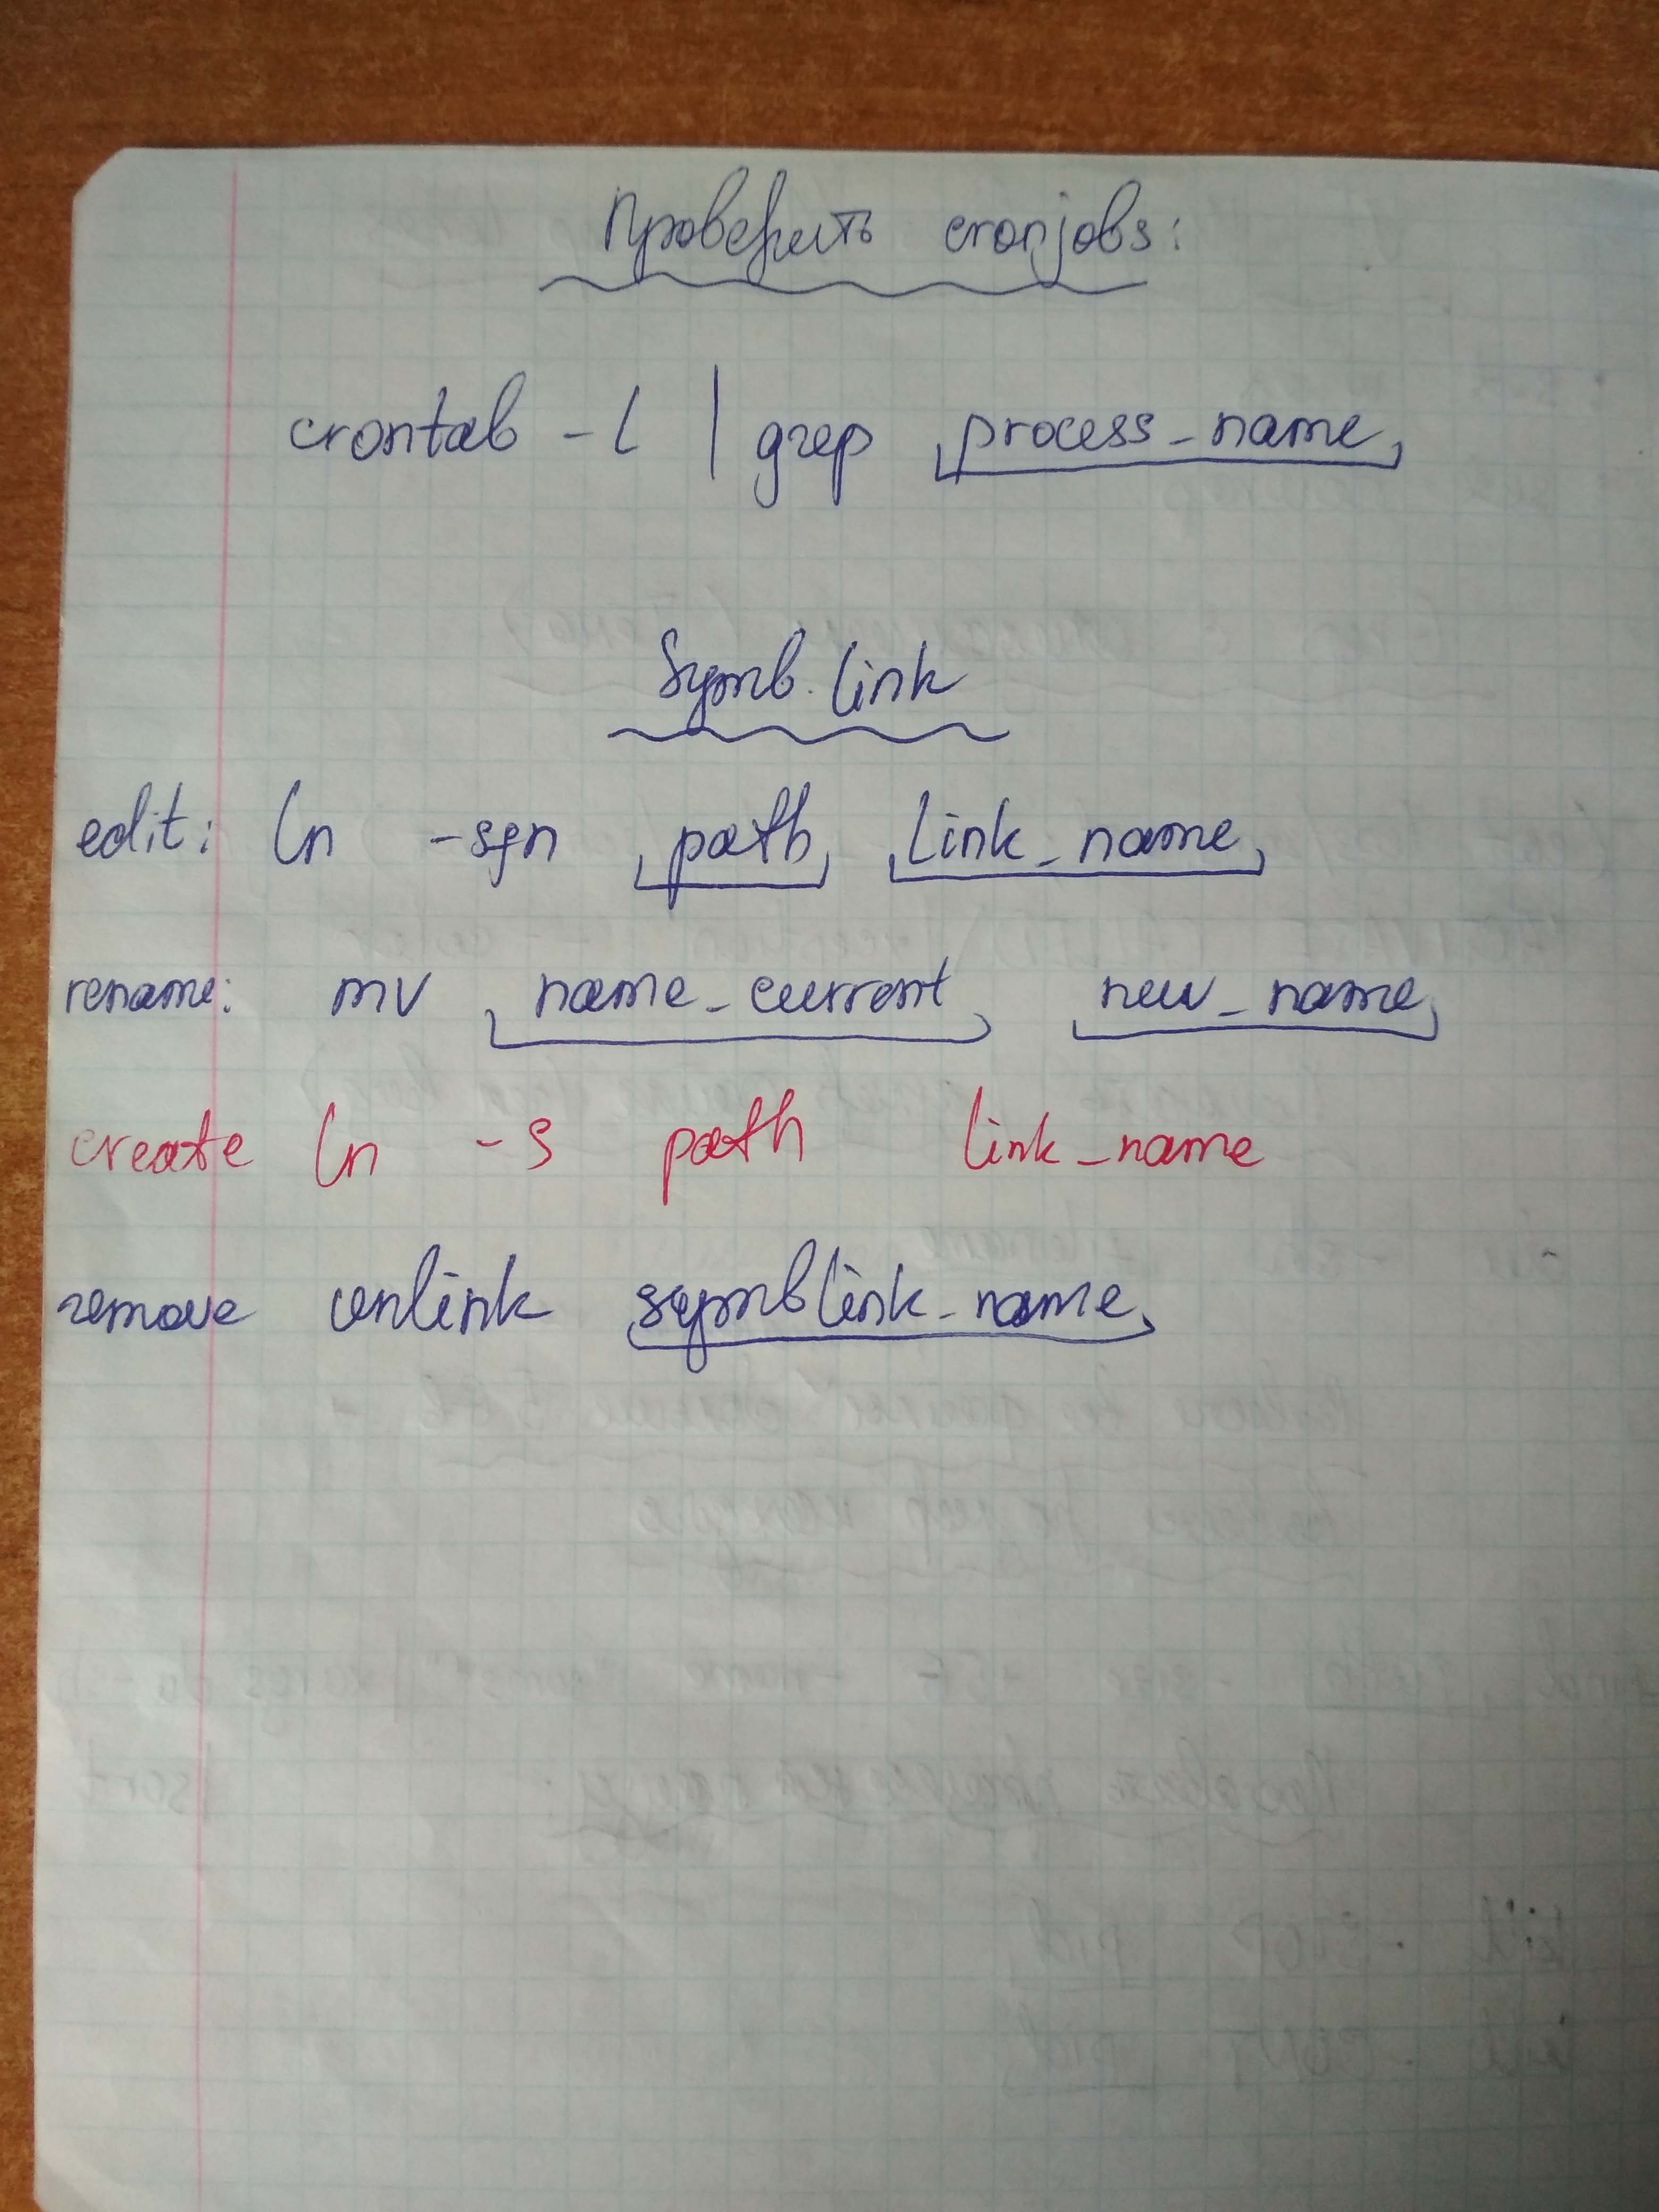 Проверить cronjobs:
crontab -l | grep process_name
Symb. link
edit: ln -sfn path link_name
rename: mv name_current new_name
create ln -s path link_name
remove unlink symblink_name